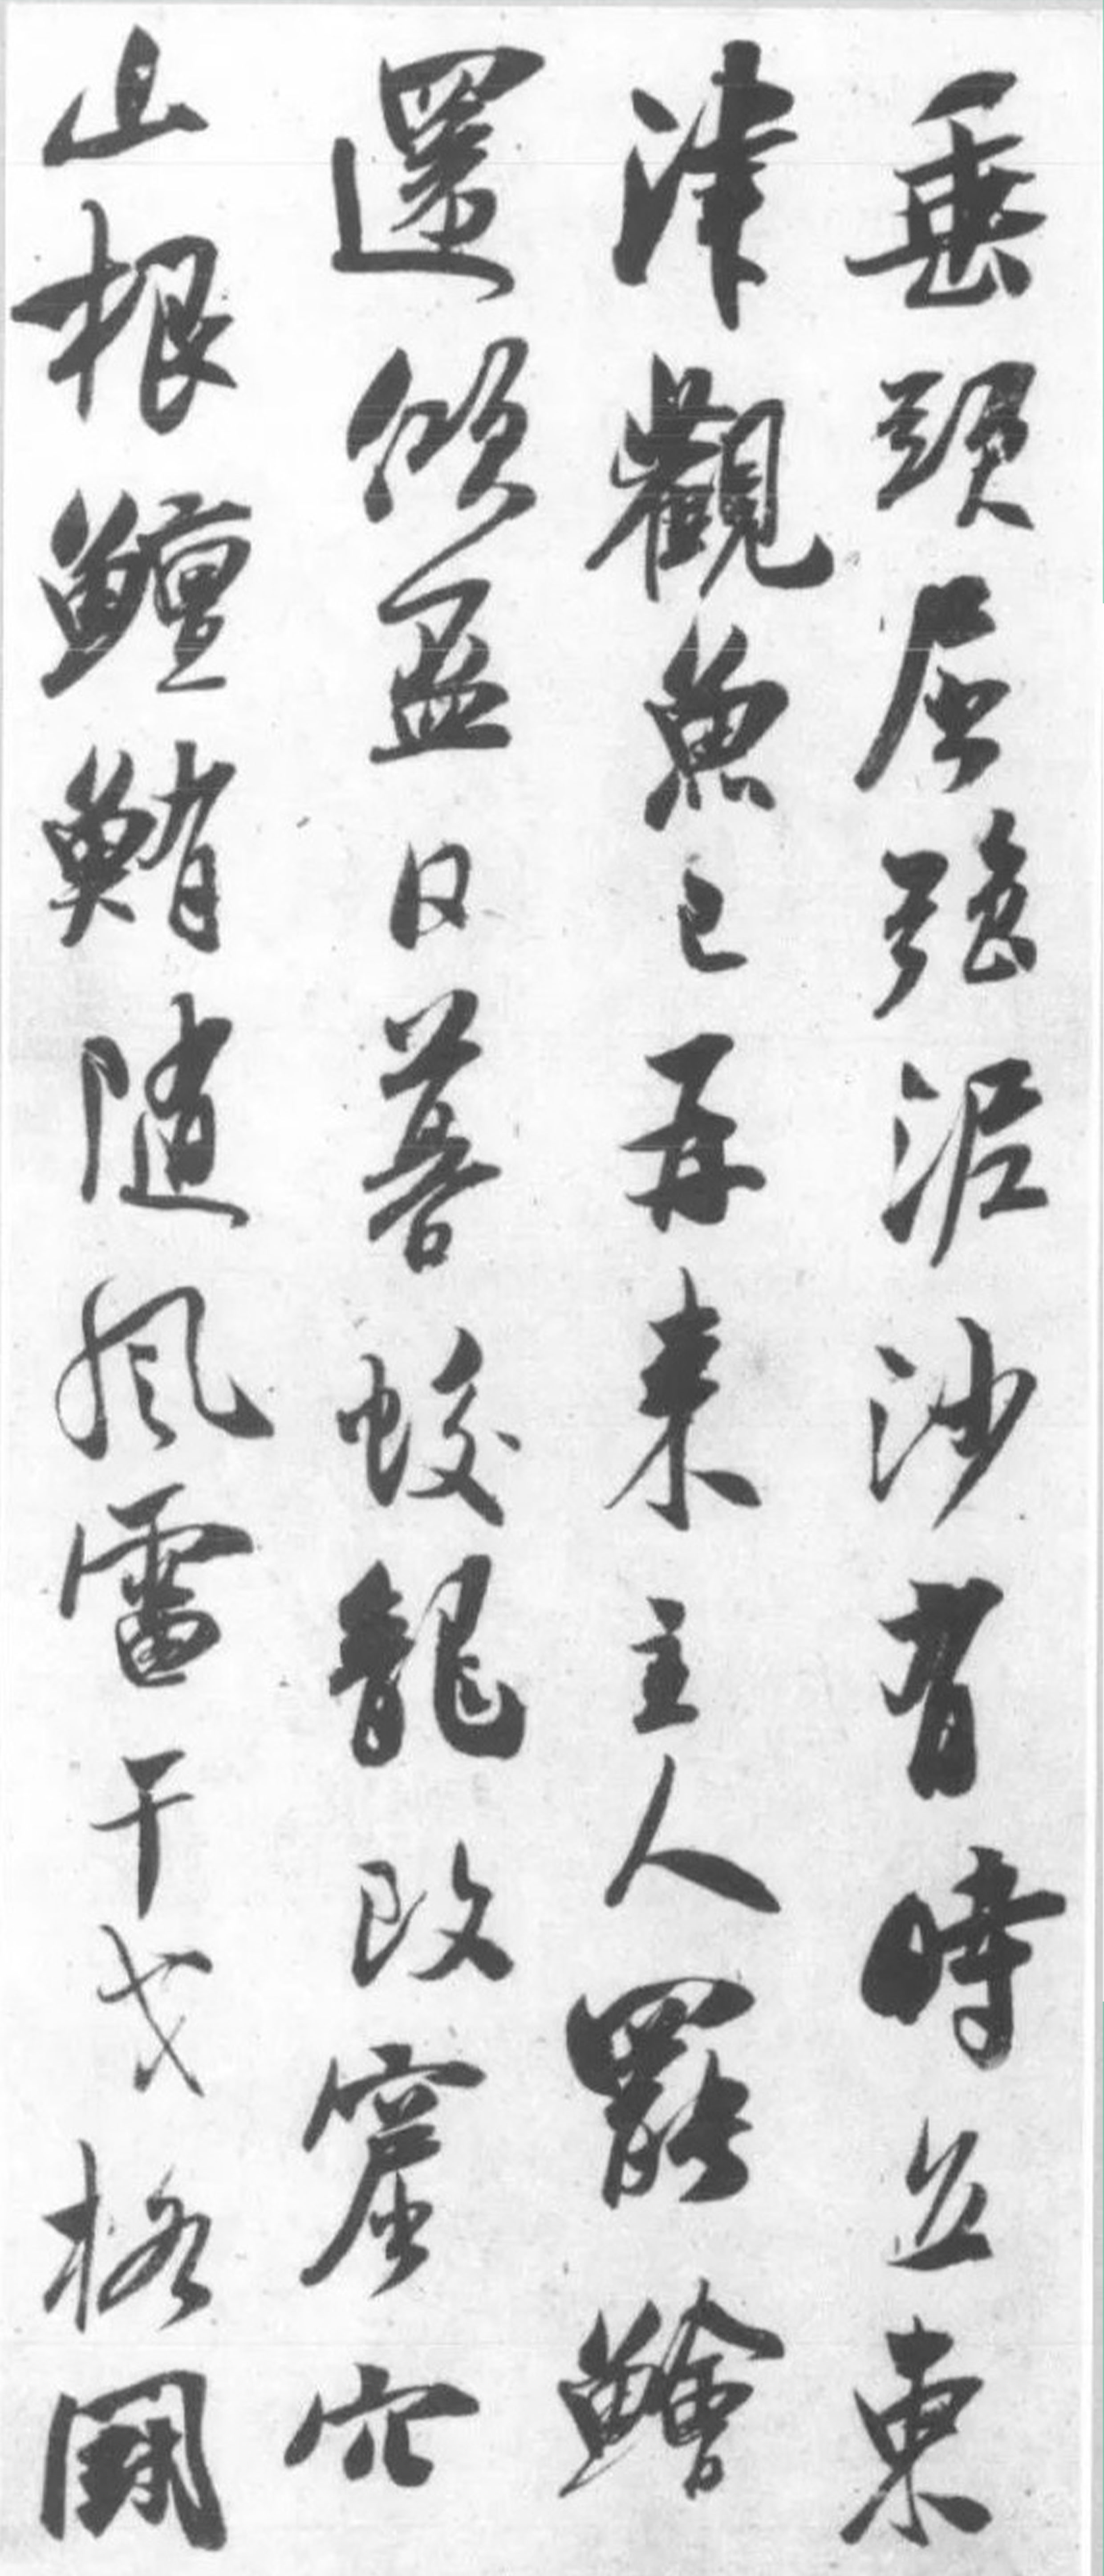 垂頭屈强泥沙有時立東
津觀魚已再来主人罷鱠
還傾盃日暮蛟龍改窟穴
山根鱣鮪隨風雷干戈格鬭